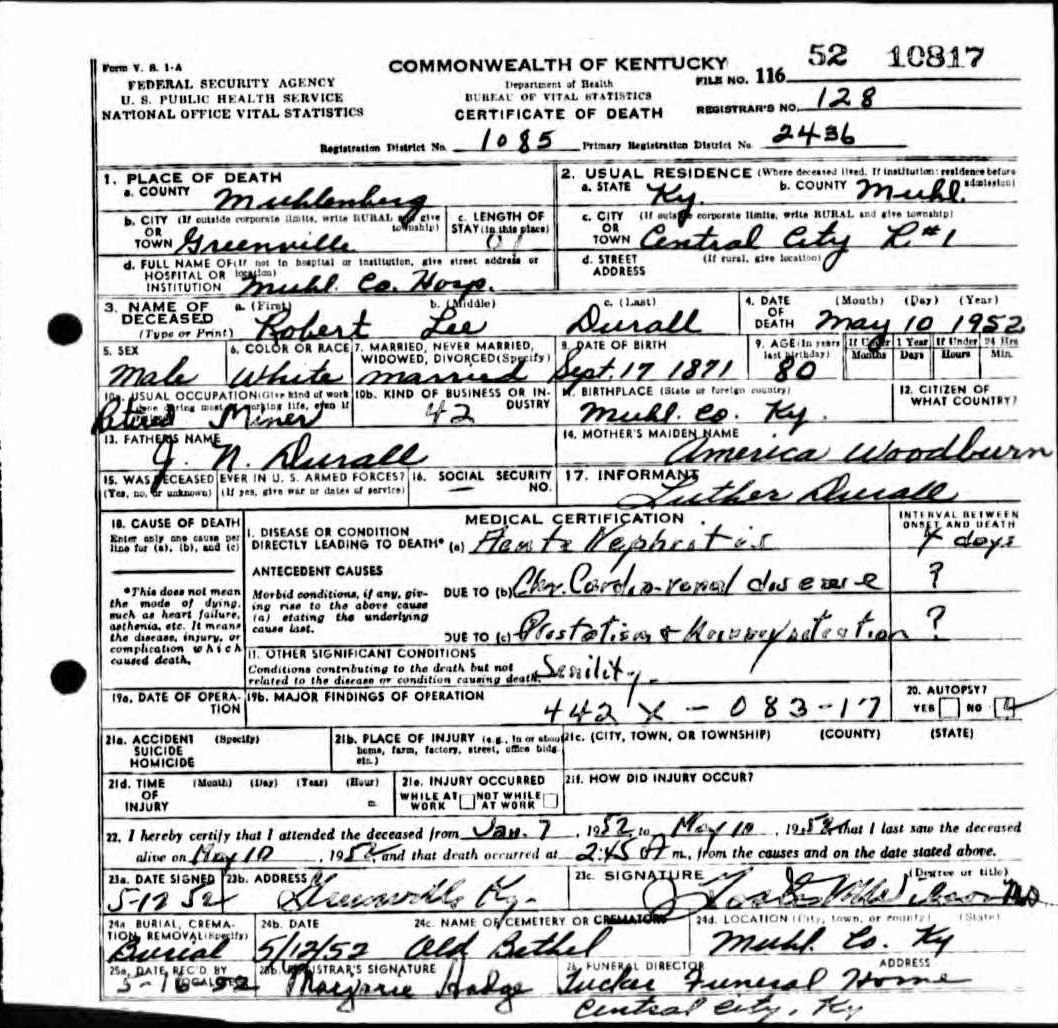 Form V. S. 1-A
FEDERAL SECURITY AGENCY
U. S. PUBLIC HEALTH SERVICE
NATIONAL OFFICE VITAL STATISTICS
COMMONWEALTH OF KENTUCKY
Department of Health
BUREAU OF VITAL STATISTICS
CERTIFICATE OF DEATH
FILE NO. 116 52 10817
REGISTRAR'S NO. 128
Registration District No. 1085 Primary Registration District No. 2436
1. PLACE OF DEATH
a. COUNTY Muhlenberg
b. CITY (If outside corporate limits, write RURAL and give township)
OR
TOWN Greenville
c. LENGTH OF
STAY (in this place)
d. FULL NAME OF (If not in hospital or institution, give street address or location)
HOSPITAL OR
INSTITUTION Muhl. Co. Hosp.
2. USUAL RESIDENCE (Where deceased lived. If institution: residence before admission)
a. STATE Ky. b. COUNTY Muhl.
c. CITY (If outside corporate limits, write RURAL and give township)
OR
TOWN Central City R#1
d. STREET (If rural, give location)
ADDRESS
3. NAME OF DECEASED
(Type or Print)
a. (First) b. (Middle) c. (Last)
Robert Lee Durall
4. DATE OF DEATH (Month) (Day) (Year)
May 10 1952
5. SEX
Male
6. COLOR OR RACE
White
7. MARRIED, NEVER MARRIED,
WIDOWED, DIVORCED (Specify)
married
8. DATE OF BIRTH
Sept. 17 1871
9. AGE (In years last birthday)
80
If Under 1 Year
Months Days
If Under 24 Hrs
Hours Min.
10a. USUAL OCCUPATION (Give kind of work done during most of working life, even if
Retired Miner
10b. KIND OF BUSINESS OR INDUSTRY
42
11. BIRTHPLACE (State or foreign country)
Muhl. Co. Ky.
12. CITIZEN OF
WHAT COUNTRY?
13. FATHER'S NAME
J. N. Durall
14. MOTHER'S MAIDEN NAME
America Woodburn
15. WAS DECEASED EVER IN U. S. ARMED FORCES?
(Yes, no, or unknown) (If yes, give war or dates of service)
16. SOCIAL SECURITY
NO.
17. INFORMANT
Luther Durall
18. CAUSE OF DEATH
Enter only one cause per
line for (a), (b), and (c)
*This does not mean
the mode of dying,
such as heart failure,
asthenia, etc. It means
the disease, injury, or
complication which
caused death.
MEDICAL CERTIFICATION
INTERVAL BETWEEN
ONSET AND DEATH
I. DISEASE OR CONDITION
DIRECTLY LEADING TO DEATH* (a) Acute Nephritis 4 days
ANTECEDENT CAUSES
Morbid conditions, if any, giving rise to the above cause (a) stating the underlying cause last.
DUE TO (b) Chr. Cardio-renal disease ?
DUE TO (c) ?
II. OTHER SIGNIFICANT CONDITIONS
Conditions contributing to the death but not
related to the disease or condition causing death.
Senility.
19a. DATE OF OPERATION
19b. MAJOR FINDINGS OF OPERATION
442 X - 083-17
20. AUTOPSY?
YES NO
21a. ACCIDENT (Specify)
SUICIDE
HOMICIDE
21b. PLACE OF INJURY (e.g., in or about home, farm, factory, street, office bldg. etc.)
21c. (CITY, TOWN, OR TOWNSHIP) (COUNTY) (STATE)
21d. TIME (Month) (Day) (Year) (Hour)
OF
INJURY m.
21e. INJURY OCCURRED
WHILE AT WORK NOT WHILE AT WORK
21f. HOW DID INJURY OCCUR?
22. I hereby certify that I attended the deceased from Jan. 7, 1952 to May 10, 1952 that I last saw the deceased
alive on May 10, 1952 and that death occurred at 2:45 m., from the causes and on the date stated above.
23a. DATE SIGNED
5-12 52
23b. ADDRESS
Greenville Ky.
23c. SIGNATURE (Degree or title)
MD
24a BURIAL, CREMATION, REMOVAL (Specify)
Burial
24b. DATE
5/12/52
24c. NAME OF CEMETERY OR CREMATORY
Old Bethel
24d. LOCATION (City, town, or county) (State)
Muhl. Co. Ky
25a. DATE REC'D BY LOCAL REG.
5-16-52
25b. REGISTRAR'S SIGNATURE
Marjorie Hodge
26. FUNERAL DIRECTOR ADDRESS
Tucker Funeral Home
Central City, Ky